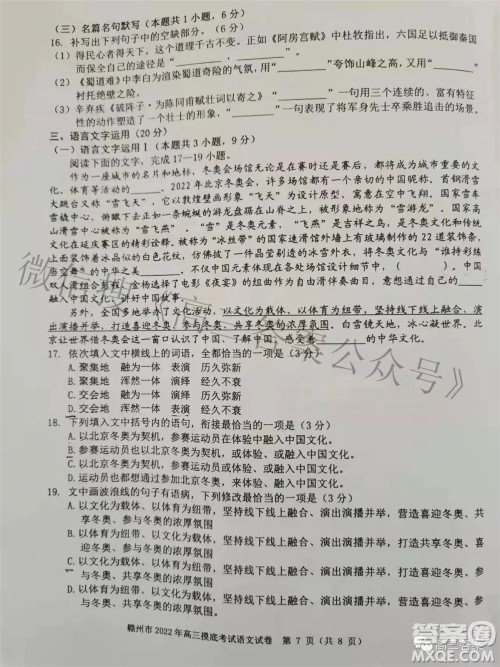 (三)名篇名句默写(本题共1小题,6分)
16. 补写出下列句子中的空缺部分。(6分)
(1)得民心者得天下,这个道理千古不变。正如《阿房宫赋》中杜牧指出,六国足以抵御秦国
而保全自己的途径是“________”,而“________”。
(2)《蜀道难》中李白为渲染蜀道奇险的气氛,用“________”夸饰山峰之高,又用“________”
衬托绝壁之险。
(3)辛弃疾《破阵子·为陈同甫赋壮词以寄之》“________”一句用三个连续的、富有特征
性的动作塑造了一个壮士的形象,“________”一句表现了将军身先士卒乘胜追击的场景。
三、语言文字运用(20分)
(一)语言文字运用Ⅰ(本题共3小题,9分)
阅读下面的文字,完成17—19小题。
作为一座城市的名片和地标,冬奥会场馆无论是在赛时还是赛后,都将成为城市最重要的文
化、体育等活动的________。2022年北京冬奥会,许多场馆都有一个美丽的名字。首钢滑雪
大跳台又称“雪飞天”,它以敦煌壁画形象“飞天”为设计原型,寓意在空中飞翔。国家雪车
雪橇中心,俯瞰下去会以蜿蜒的游龙盘踞在山脊之上,被形象地称为“雪游龙”。国家高
山滑雪中心被称为“雪飞燕”,“雪”是冬奥元素,“飞燕”是吉祥之鸟,自然元素与人文
文化在延庆赛区的精彩诠释。被称为“冰丝带”的国家速滑馆外墙上有玻璃制作的22道装饰条,
上面装饰着晶体似的白色花纹,仿佛披了一件晶莹剔透的动态纱衣,将冬奥文化与“谁持彩练
当空舞”的中华之美________。不仅仅是在场馆方面,(        )。中国花样滑冰
双人滑组合彭程、金杨选择了电影《夜宴》的歌曲作为自由滑伴奏曲目,意在通过自己的____
融入中国文化、讲好中国故事。
另外,全国多地举办了大量活动,以文化为载体,以体育为纽带,坚持线下线上融合、演出
演播齐举,打造喜迎冬奥、参与冬奥、共享冬奥的浓厚氛围。白雪镜天地,冰心凝世界,北
京让世界借冬奥认识了中国、了解了中国,感受了________的中华文化。
17. 依次填入文中横线上的词语,全都恰当的一项是(3分)
A. 聚集地 融为一体 表演 历久弥新
B. 聚集地 浑然一体 表演 经久不衰
C. 交会地 融为一体 表演 历久弥新
D. 交会地 浑然一体 表演 经久不衰
18. 下列填入文中括号内的语句,衔接最恰当的一项是(3分)
A. 以北京冬奥为契机,参赛运动员在体验中融入中国文化。
B. 以北京冬奥为契机,参赛运动员或体验、或融入中国文化。
C. 参赛运动员也以北京冬奥为契机,体验、融入中国文化。
D. 参赛运动员也以北京冬奥为契机,或体验,或融入中国文化。
19. 文中画波浪线的句子有语病,下列修改最恰当的一项是(3分)
A. 以文化为载体、以体育为纽带,坚持线下线上融合、演出演播并举,营造喜迎冬奥、共
享冬奥、参与冬奥的浓厚氛围
B. 以体育为载体、以文化为纽带,坚持线下线上融合、演出演播并举,打造共享冬奥、喜
迎冬奥、参与冬奥的浓厚氛围
C. 以文化为载体、以体育为纽带,坚持线下线上融合、演出演播并举,营造喜迎冬奥、参
与冬奥、共享冬奥的浓厚氛围
D. 以体育为载体、以文化为纽带,坚持线下线上融合、演出演播并举,打造喜迎冬奥、参
与冬奥、共享冬奥的浓厚氛围
赣州市2022年高三摸底考试语文试卷 第7页(共8页)